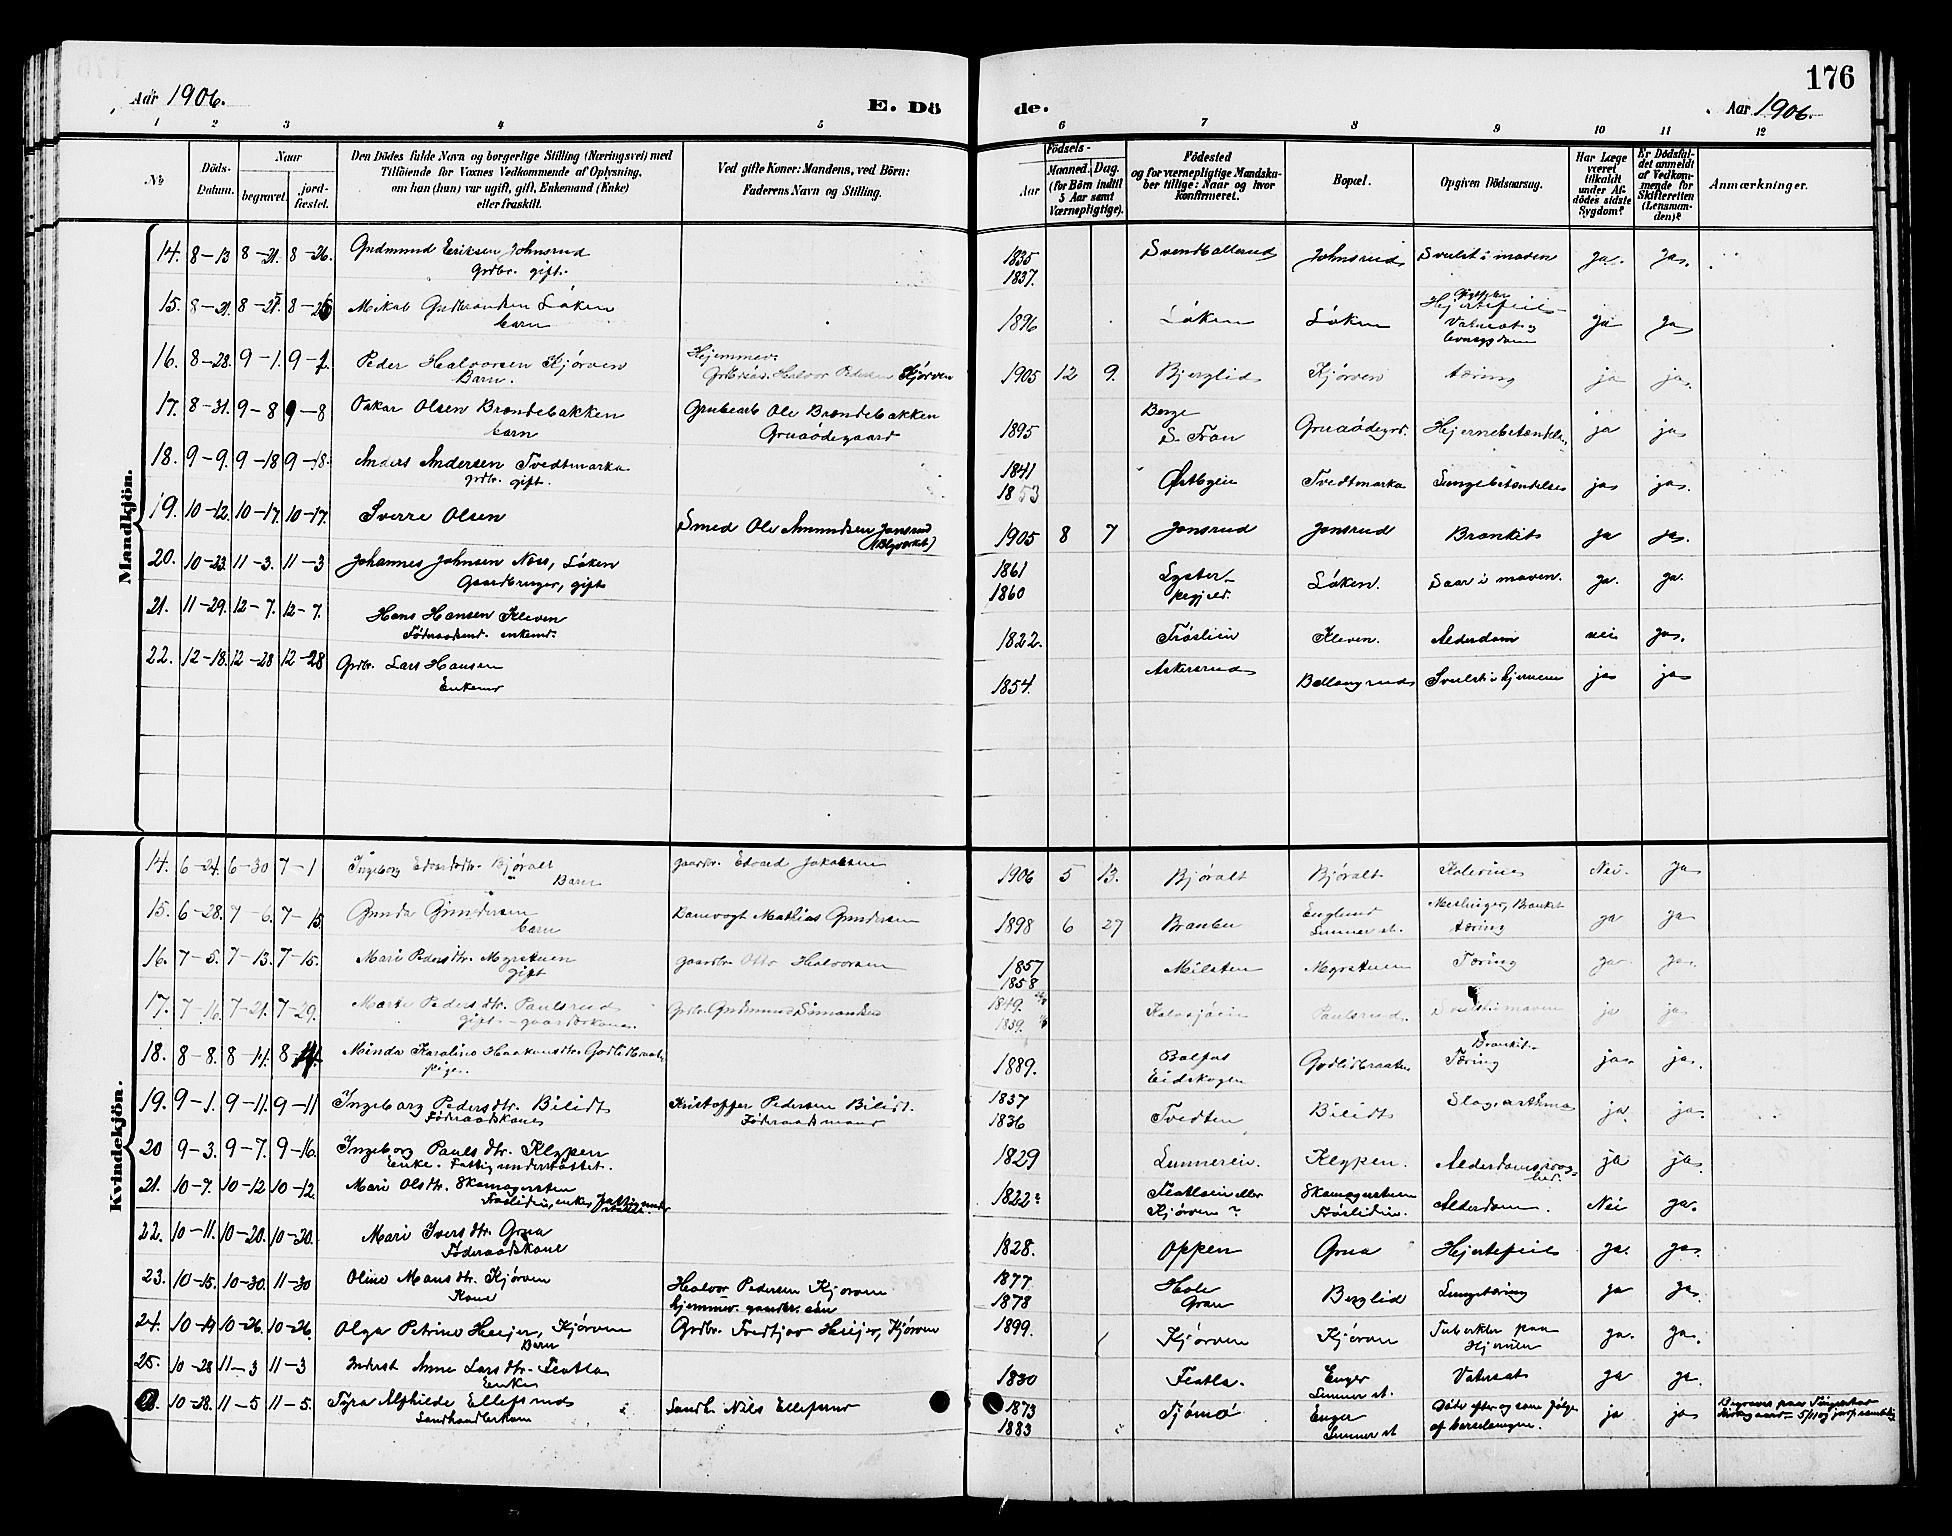 176
Aar 1906.
E. Dö
de.
Aar 1906.
1 2 3 4 5 6 7 8 9 10 11 12
No
Döds-
Datum.
Naar
begravet.
jord-
fæstet.
Den Dödes fulde Navn og borgerlige Stilling (Næringsvei) med
Tilföiende for Voxnes Vedkommende af Oplysning,
om han (hun) var ugift, gift, Enkemand (Enke)
eller fraskilt.
Ved gifte Koner: Mandens, ved Börn:
Faderens Navn og Stilling.
Födsels-
Aar
Maaned. Dag.
(for Börn indtil
5 Aar samt
Værnepligtige).
Födested
og for værnepligtige Mandska-
ber tillige: Naar og hvor
konfirmeret.
Bopæl.
Opgiven Dödsaarsag.
Har Læge
været
tilkaldt
under Af-
dödes sidste
Sygdom?
Er Dödsfal-
det anmeldt
af Vedkom-
mende for
Skifteretten
(Lensman-
den)?
Anmærkninger.
Mandkjön.
14. 8-13 8-21. 8-26. Gudmund Eriksen Johnsrud 1835 Svenballerud Johnsrud Svulst i maven ja. ja.
Grdbr. gift. 1837.
15. 8-21. 8-25 Løken 1896 Løken Løken Hjertefeil ja ja
barn Vatersot og
leversygdom
16. 8-28. 9-1. Peder Halvorsen Kjørven Hjemmev. Halvor Pedersen Kjørven 1905 12 9. Bjerglid Kjørven tæring ja ja.
Barn.
17. 8-31. 9-8 9-8 Oskar Olsen Brændebakken Grubearb Ole Brændebakken 1895 S. Tran Gruaødegrd. Hjernebetændelse ja ja
barn Gruaødegaard
18. 9-9. 9-18 9-18. Anders Andersen Tvedtmarka 1841 Østbyeie Tvedtmarka Lungebetændelse ja ja.
grdbr. gift. 1853
19. 10-12. 10-17. 10-17. Sverre Olsen Smed Ole Amundsen Jonsrud 1905 8 7 Jonsrud Jonsrud Bronkit ja ja.
(Blyverket)
20. 10-23 11-3. 11-3 Johannes Johnsen Næss, Løken 1861 Lyster Løken. Saar i maven. ja. ja.
Gaardbruger, gift 1860 prgjeld.
21. 11-29. 12-7. 12-7. Hans Hansen Kleven 1822. Trøslien Kleven. Alderdom nei ja.
Føderaadsmd. enkemd.
22. 12-18. 12-28 12-28 Grdbr. Lars Hansen 1854. Askerud Ballangrud Svulst i hjernen ja ja
Enkemd
Kvindekjön.
14. 6-24. 6-30 7-1 Ingeborg Edvardsdtr. Bjøralt gaardbr. Edvard Jakobsen 1906 5 13. Bjøralt Bjøralt Kolerine Nei. ja
Barn
15. 6-28. 7-6. 7-15. Gunda Gundersen Banevogt Mathias Gundersen 1898 6 27 Branbu Englund Meslinger, Bronkit ja ja
barn Lunner st. tæring
16. 7-5. 7-13. 7-15. Mari Pedersdtr. Myrstuen gaardbr. Otto Halvorsen 1857 Milsten Myrstuen Tæring ja ja.
gift 1858
17. 7-16. 7-21. 7-29. Marte Pedersdtr. Paulsrud Grdbr. Gudmund Simensen 1849. Kalvsjøeie Paulsrud. Svulst i maven ja ja
gift - gaardskone. 1839.
18. 8-8. 8-11. Minda Karoline Haakensdtr. Godlidbraaten 1889. Eidskogen Godlidbraaten Bronkit. Tæring ja. ja.
pige.
19. 9-1. 9-11. 9-11 Ingeborg Pedersdtr. Bilidt Kristoffer Pedersen Bilidt. 1837 Tvedten Bilidt Slag, asthma ja. ja.
Føderaadskone Føderaadsmand 1836
20 9-3. 9-7. 9-16. Ingeborg Paulsdtr. Klypen 1829 Lunnereie. Klypen. Alderdomssvag- ja ja.
Enke. Fattigunderstøttet. hed.
21. 10-7. 10-12 10-12. Mari Olsdtr. Skomagerstuen 1822? eller Skomagerstuen Alderdom. Nei ja.
enke, Kjørven? Trøslieie.
22. 10-11. 10-20. 10-20. Mari Iversdtr. Grua 1828. Oppen Grua Hjertefeil ja. ja.
Føderaadskone
23. 10-15. 10-30. 11-30 Oline Monsdtr. Kjørven Halvor Pedersen Kjørven 1877 Hole Berglid Lungetæring ja ja.
Kone hjemmev. gaardbr. søn 1878 Gran
24. 10-19 10-26. 10-26. Olga Petrine Heijer, Kjørven Grdbr. Fredtjov Heijer, Kjørven 1899. Kjørven Kjørven Tuberkler paa ja. ja.
Barn Hjernen
25. 10-28 11-3 11-3 Inderst Anne Larsdtr. Teatla 1830 Teatla. Enger Vatersot ja ja.
Enke Lunner st.
10-28. 11-5 11-5. Tyra Alphilde Ellefsrud Landh. Nils Ellefsrud 1873 Tjømø Enger Døde efter og som følge ja ja
Landhandlerkone 1883 Lunner st af barselsengen.